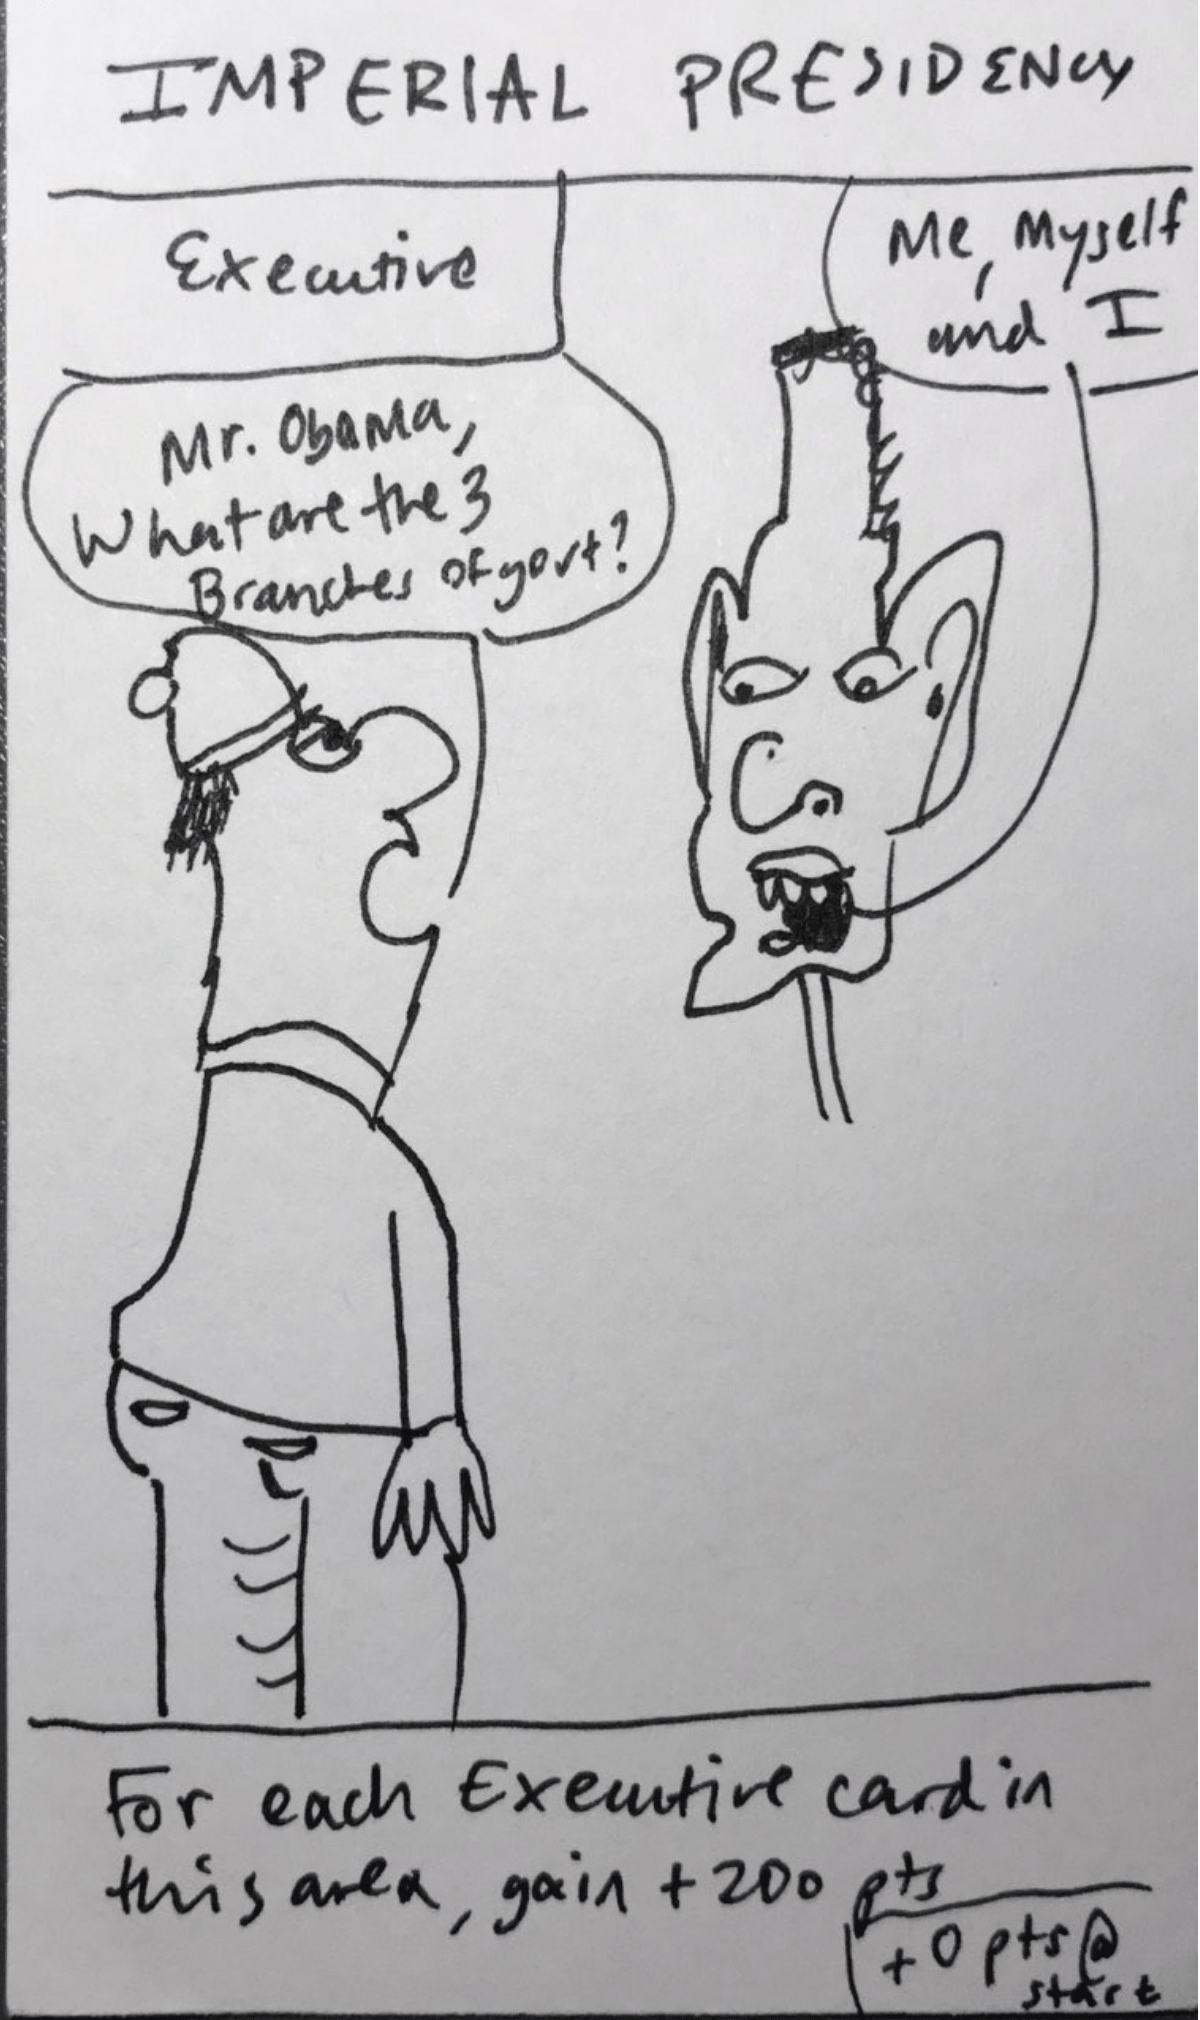 IMPERIAL PRESIDENCY
Executive
Me, Myself
and I
Mr. Obama,
What are the 3
Branches of govt?
For each Executive card in
this area, gain +200 pts
+0 pts @
start